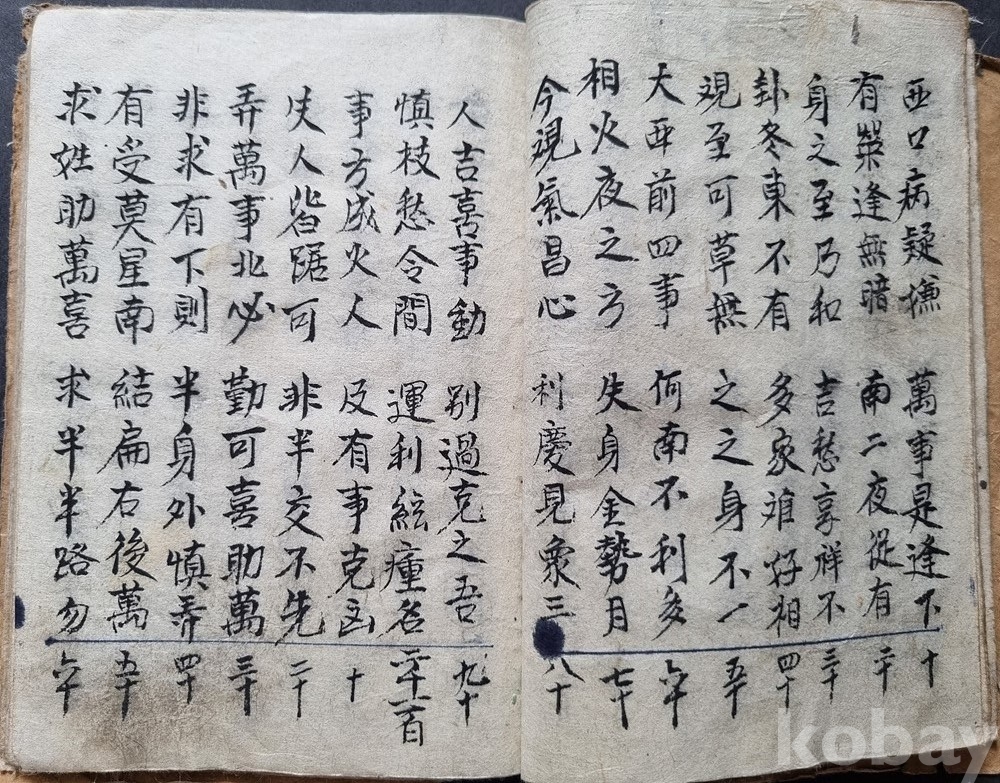 西口病疑㧻 萬事是逢下 十
有築逢無暗 南二夜從有 二十
身之至乃和 吉愁享祥不 三十
卦冬東不有 多家难好相 四十
現至可草無 之之身不一 五十
大西前四事 何南不利多 六十
相火夜之亏 失身金勢月 七十
今現氣昌心 利慶見衆三 八十
人吉喜事動 别過克之吾 九十
慎枝愁令間 運利絃瘇名 一百
事方成火人 及有事克凶 十
失人皆踞可 非半交不先 二十
弄萬事北必 勤可喜助萬 三十
非求有下則 半身外慎弄 四十
有受莫星南 結扁右後萬 五十
求姓助萬喜 求半半路勿 六十
kobay